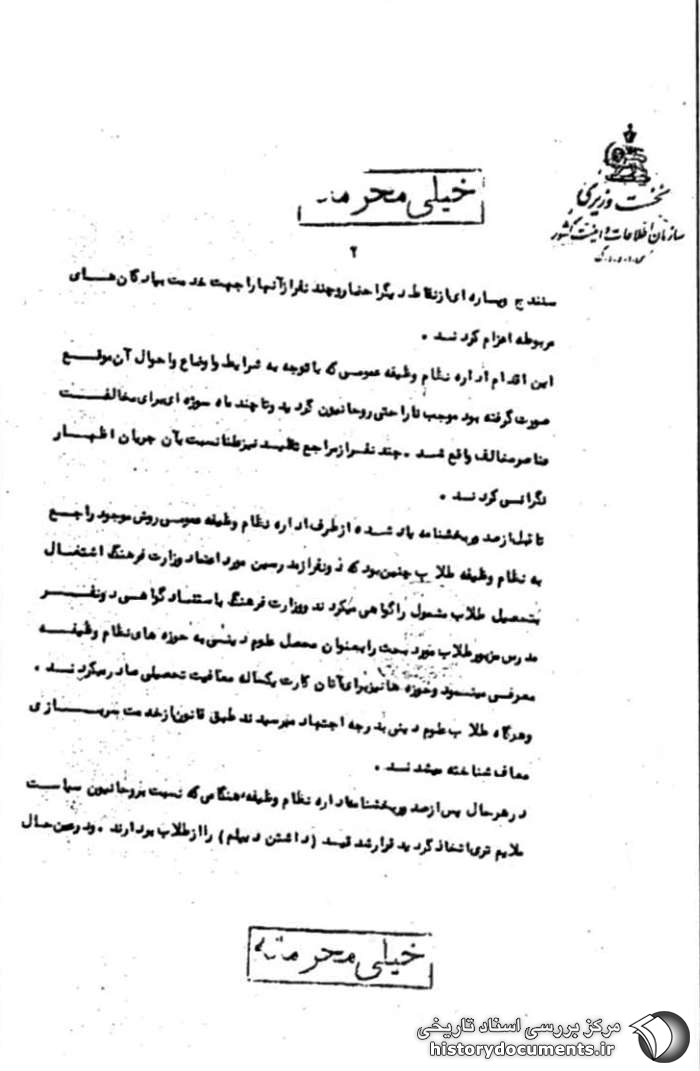 نخست وزیری
سازمان اطلاعات و امنیت کشور
خیلی محرمانه
۲
سنندج و پاره ای از نقاط دیگر احضار و چند نفر از آنها را جهت خدمت بپادگان های
مربوطه اعزام کردند .
این اقدام اداره نظام وظیفه عمومی که با توجه به شرایط و اوضاع و احوال آن موقع
صورت گرفته بود موجب ناراحتی روحانیون گردید و تا چند ماه سوژه ای برای مخالفت
عناصر مخالف واقع شد . چند نفر از مراجع تقلید نیز طنا نسبت بآن جریان اظهار
نگرانی کردند .
تا قبل از صدور بخشنامه یاد شده از طرف اداره نظام وظیفه عمومی روش موجود راجع
به نظام وظیفه طلاب چنین بود که دو نفر از مدرسین مورد اعتماد وزارت فرهنگ اشتغال
بتحصیل طلاب مشمول را گواهی میکردند و وزارت فرهنگ با استناد گواهی دو نفر
مدرس مزبور طلاب مورد بحث را بعنوان محصل علوم دینی به حوزه های نظام وظیفه
معرفی مینمود و حوزه ها نیز برای آنان کارت یکساله معافیت تحصیلی صادر میکردند .
و هرگاه طلاب علوم دینی بدرجه اجتهاد میرسیدند طبق قانون از خدمت سربازی
معاف شناخته میشدند .
در هر حال پس از صدور بخشنامه اداره نظام وظیفه، هنگامی که نسبت بروحانیون سیاست
ملایم تری اتخاذ گردید قرار شد قید (داشتن دیپلم) را از طلاب بردارند . و در عین حال
خیلی محرمانه
مرکز بررسی اسناد تاریخی
historydocuments.ir